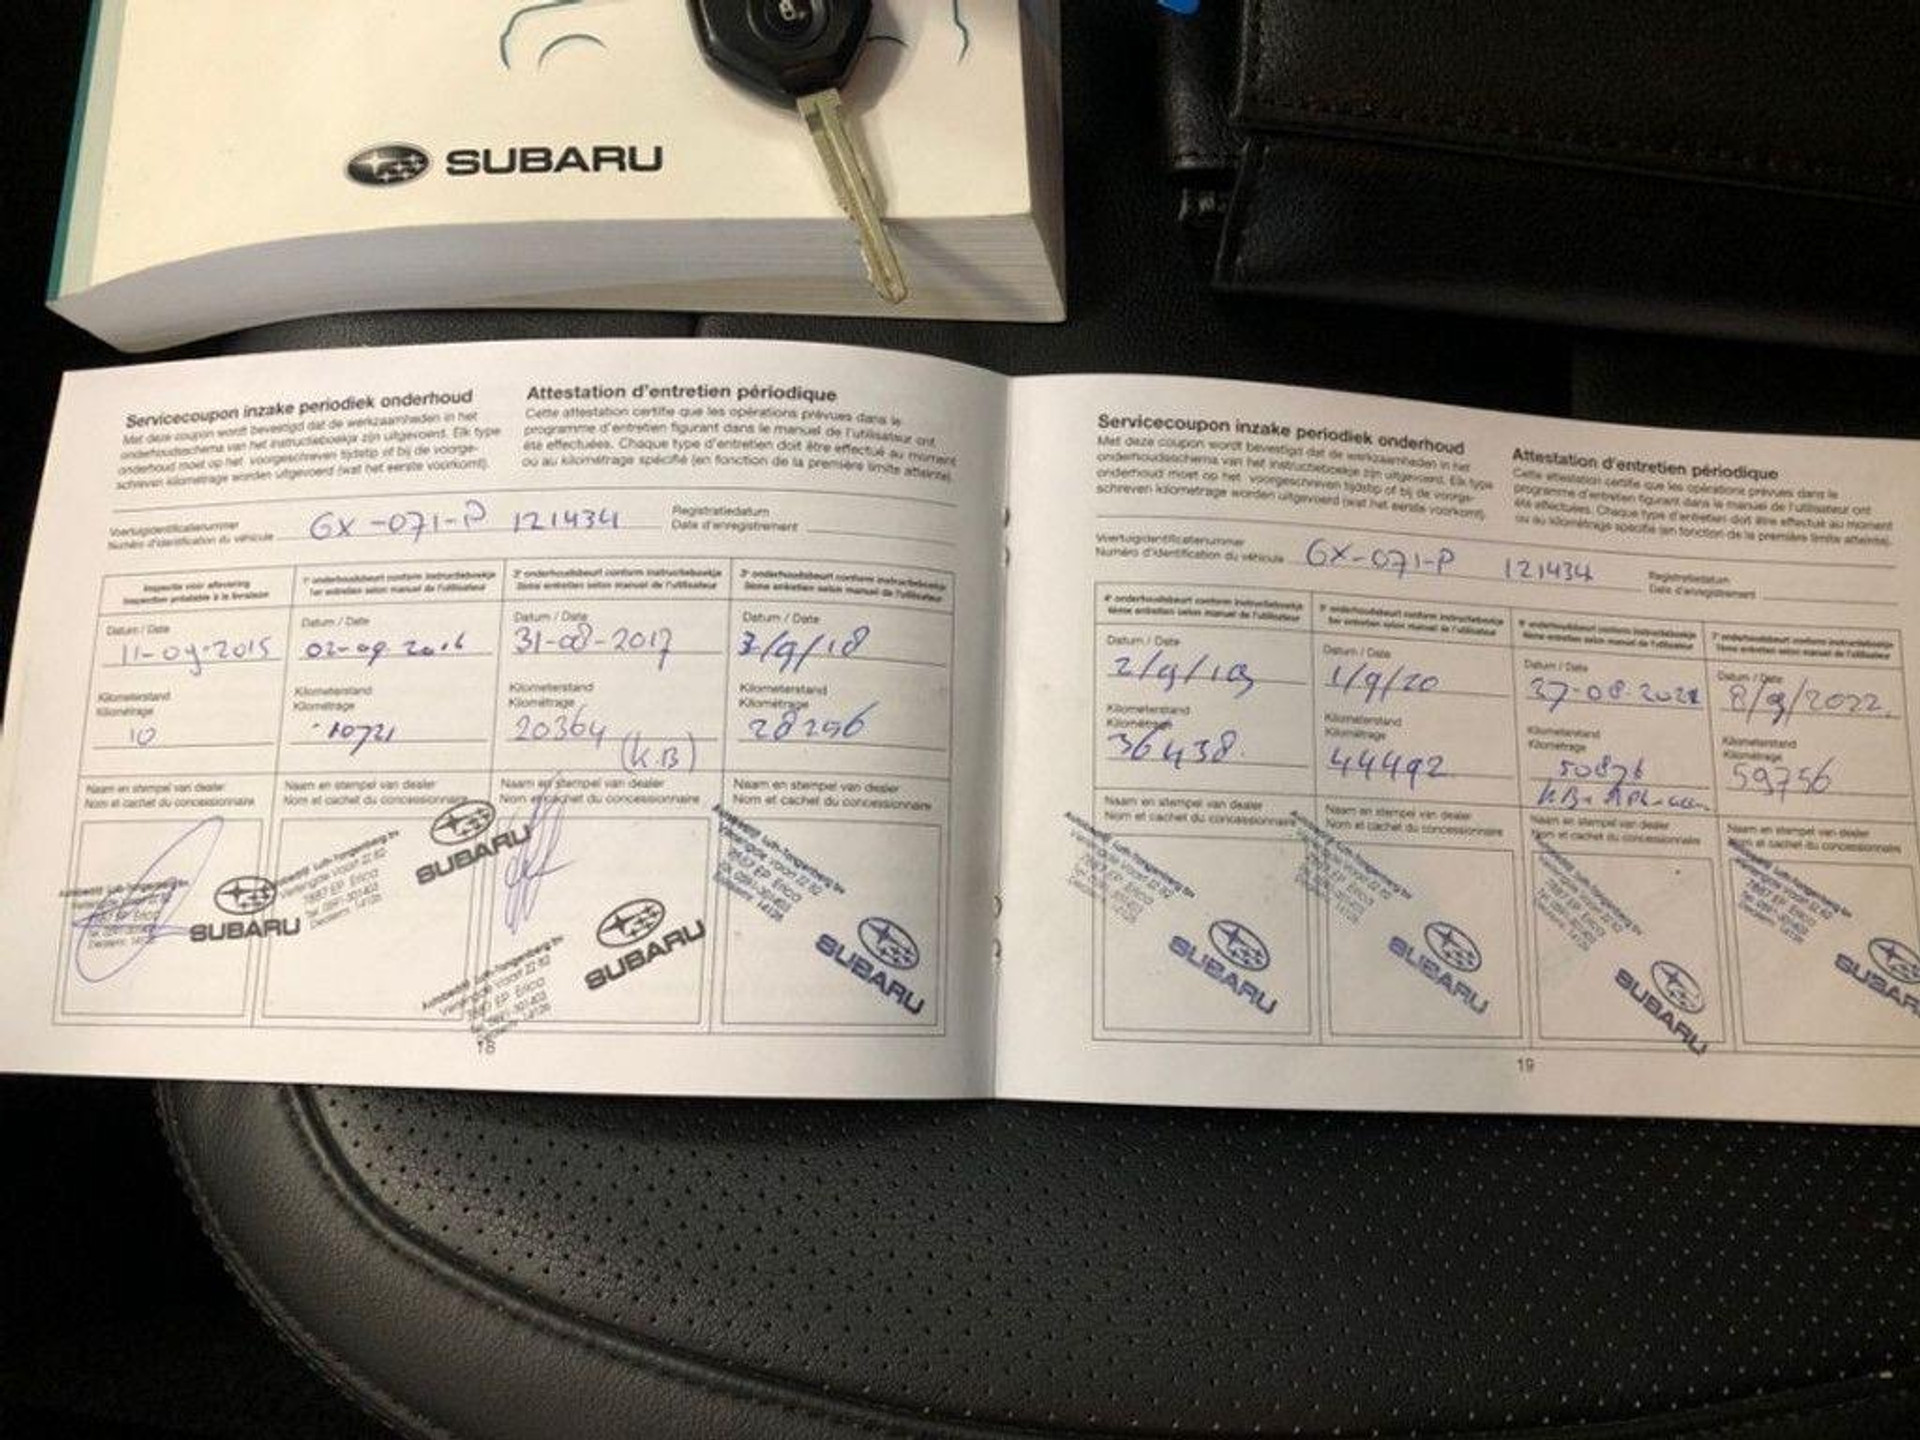 SUBARU
Servicecoupon inzake periodiek onderhoud
Met deze coupon wordt bevestigd dat de werkzaamheden in het
onderhoudsschema van het instructieboekje zijn uitgevoerd. Elk type
onderhoud moet op het voorgeschreven tijdstip of bij de voorge-
schreven kilometrage worden uitgevoerd (wat het eerste voorkomt).
Attestation d'entretien périodique
Cette attestation certifie que les opérations prévues dans le
programme d'entretien figurant dans le manuel de l'utilisateur ont
été effectuées. Chaque type d'entretien doit être effectué au moment
ou au kilométrage spécifié (en fonction de la première limite atteinte).
Voertuigidentificatienummer
Numéro d'identification du véhicule
GX-071-P 121434
Registratiedatum
Date d'enregistrement
Inspectie vóór aflevering
Inspection préalable à la livraison
1e onderhoudsbeurt conform instructieboekje
1er entretien selon manuel de l'utilisateur
2e onderhoudsbeurt conform instructieboekje
2ème entretien selon manuel de l'utilisateur
3e onderhoudsbeurt conform instructieboekje
3ème entretien selon manuel de l'utilisateur
Datum / Date
11-09-2015
Datum / Date
02-09-2016
Datum / Date
31-08-2017
Datum / Date
3/9/18
Kilometerstand
Kilométrage
10
Kilometerstand
Kilométrage
10721
Kilometerstand
Kilométrage
20364
(K.B)
Kilometerstand
Kilométrage
28256
Naam en stempel van dealer
Nom et cachet du concessionnaire
Naam en stempel van dealer
Nom et cachet du concessionnaire
Naam en stempel van dealer
Nom et cachet du concessionnaire
Naam en stempel van dealer
Nom et cachet du concessionnaire
SUBARU
7887 EP Erica
SUBARU
7887 EP Erica
SUBARU
7887 EP Erica
SUBARU
18
Servicecoupon inzake periodiek onderhoud
Met deze coupon wordt bevestigd dat de werkzaamheden in het
onderhoudsschema van het instructieboekje zijn uitgevoerd. Elk type
onderhoud moet op het voorgeschreven tijdstip of bij de voorge-
schreven kilometrage worden uitgevoerd (wat het eerste voorkomt).
Attestation d'entretien périodique
Cette attestation certifie que les opérations prévues dans le
programme d'entretien figurant dans le manuel de l'utilisateur ont
été effectuées. Chaque type d'entretien doit être effectué au moment
ou au kilométrage spécifié (en fonction de la première limite atteinte).
Voertuigidentificatienummer
Numéro d'identification du véhicule
GX-071-P 121434
Registratiedatum
Date d'enregistrement
4e onderhoudsbeurt conform instructieboekje
4ème entretien selon manuel de l'utilisateur
5e onderhoudsbeurt conform instructieboekje
entretien selon manuel de l'utilisateur
6e onderhoudsbeurt conform instructieboekje
6ème entretien selon manuel de l'utilisateur
7e onderhoudsbeurt conform instructieboekje
7ème entretien selon manuel de l'utilisateur
Datum / Date
2/9/19
Datum / Date
1/9/20
Datum / Date
-08-2021
Datum / Date
8/9/2022
Kilometerstand
Kilométrage
36438
Kilometerstand
Kilométrage
44492
Kilometerstand
Kilométrage
50876
Kilometerstand
Kilométrage
59756
Naam en stempel van dealer
Nom et cachet du concessionnaire
Naam en stempel van dealer
Nom et cachet du concessionnaire
Naam en stempel van dealer
Nom et cachet du concessionnaire
Naam en stempel van dealer
Nom et cachet du concessionnaire
7887 EP Erica
SUBARU
7887 EP Erica
SUBARU
7887 EP Erica
SUBARU
7887 EP Erica
SUBARU
19